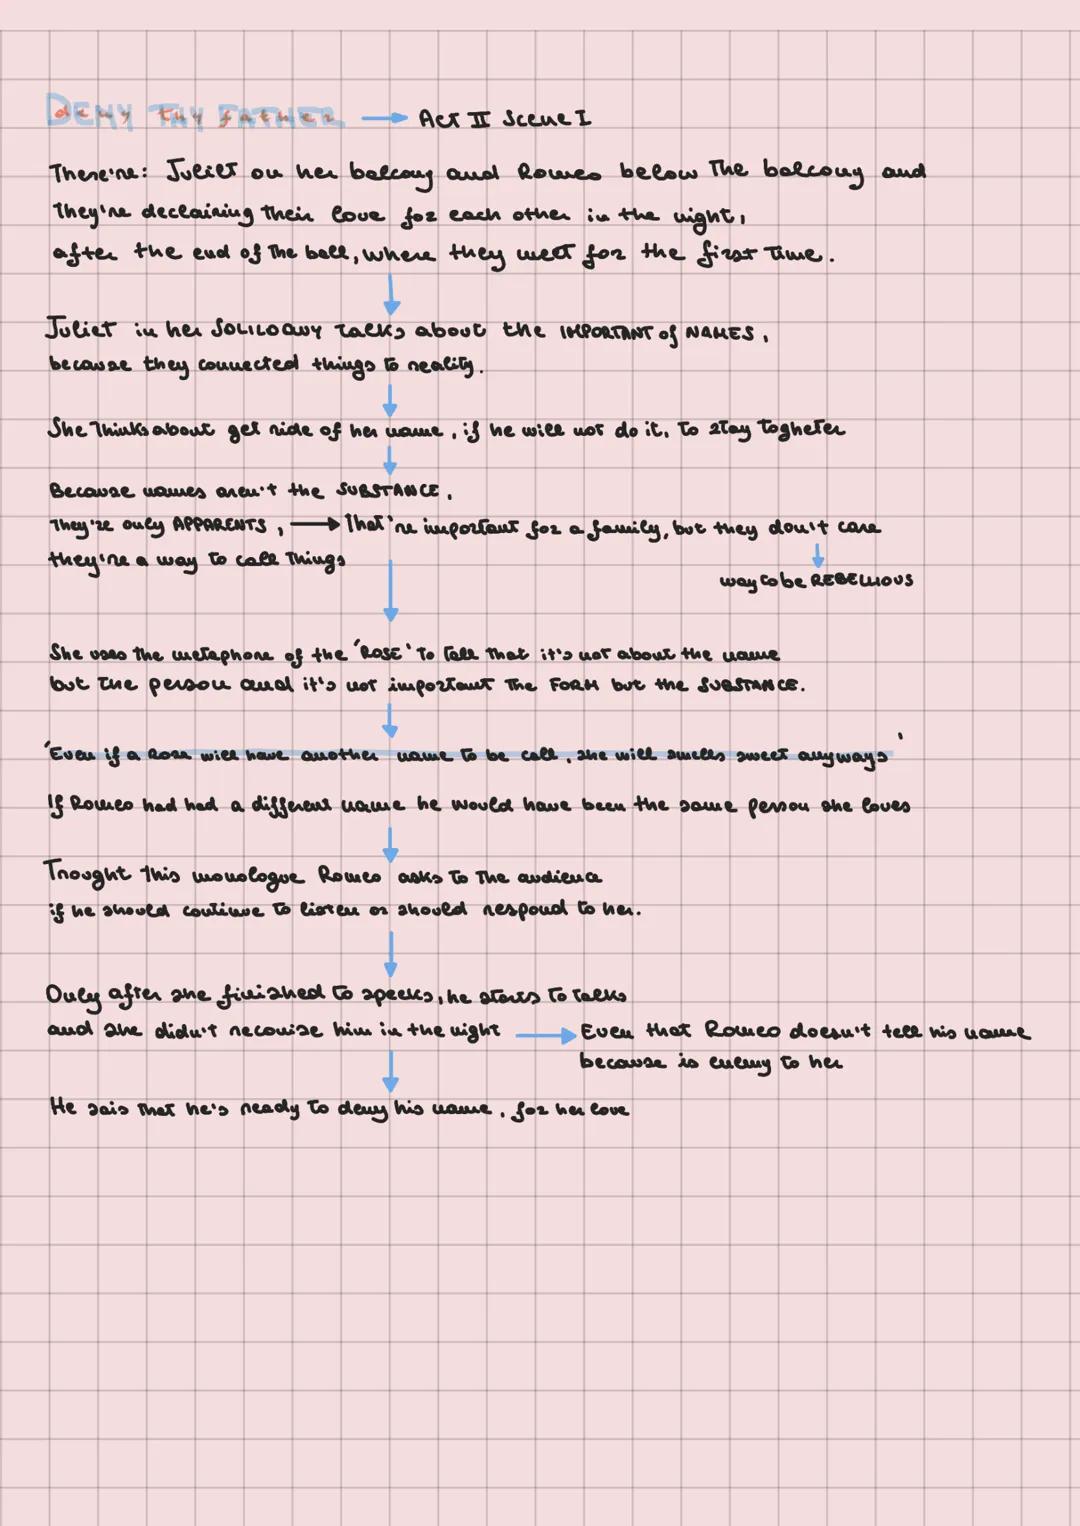 DENY THY FATHER → Act II Scene I
There're: Juliet on her balcony and Romeo below the balcony and
They're declairing their love for each other in the night,
after the end of the ball, where they meet for the first time.
Juliet in her SOLILOQUY talks about the IMPORTANT of NAMES,
because they connected things to reality.
She thinks about get ride of her name, if he will not do it, to stay togheter
Because names aren't the SUBSTANCE,
They're only APPARENTS, → That're important for a family, but they don't care
they're a way to call things
way to be REBELLIOUS
She uses the metaphore of the 'ROSE' to tell that it's not about the name
but the person and it's not important the FORM but the SUBSTANCE.
'Even if a Rose will have another name to be call, she will smells sweet anyways'
If Romeo had had a different name he would have been the same person she loves
Trought this monologue Romeo asks to the audience
if he should continue to listen or should respond to her.
Only after she finished to speeks, he starts to talks
and she didn't reconise him in the night → Even that Romeo doesn't tell his name
because is enemy to her
He sais that he's ready to deny his name, for her love